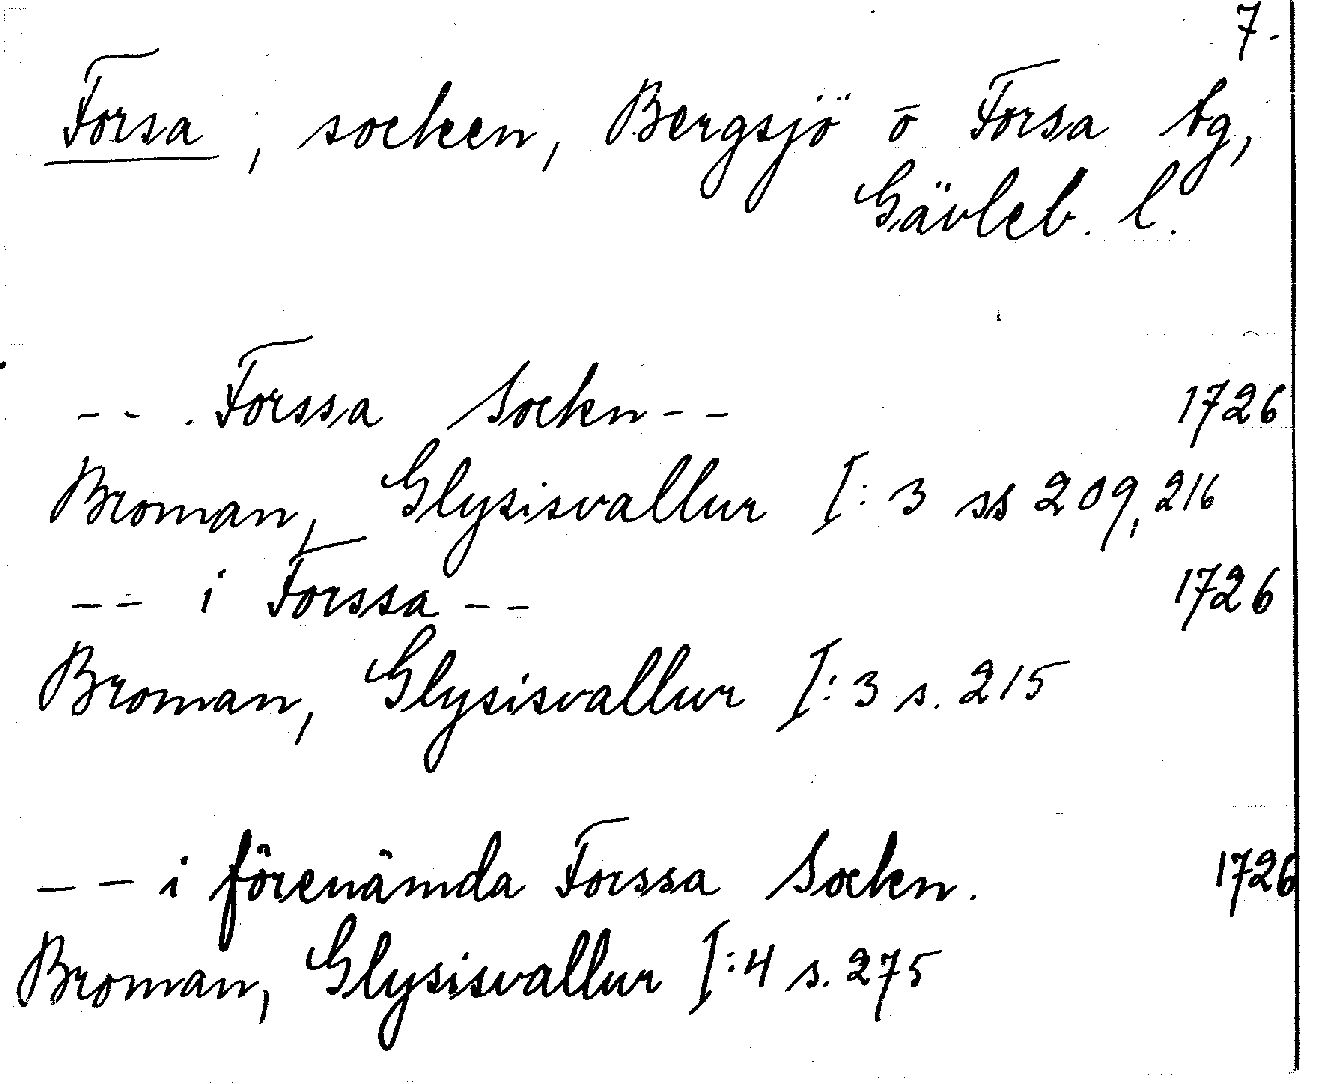 7.
Forsa, socken, Bergsjö o Forsa tg,
Gävleb. l.
-- . Forssa Sockn -- 1726
Broman, Glysisvallur I:3 ss 209, 216
-- i Forssa -- 1726
Broman, Glysisvallur I:3 s. 215
-- i förenämda Forssa Sockn. 1726
Broman, Glysisvallur I:4 s. 275